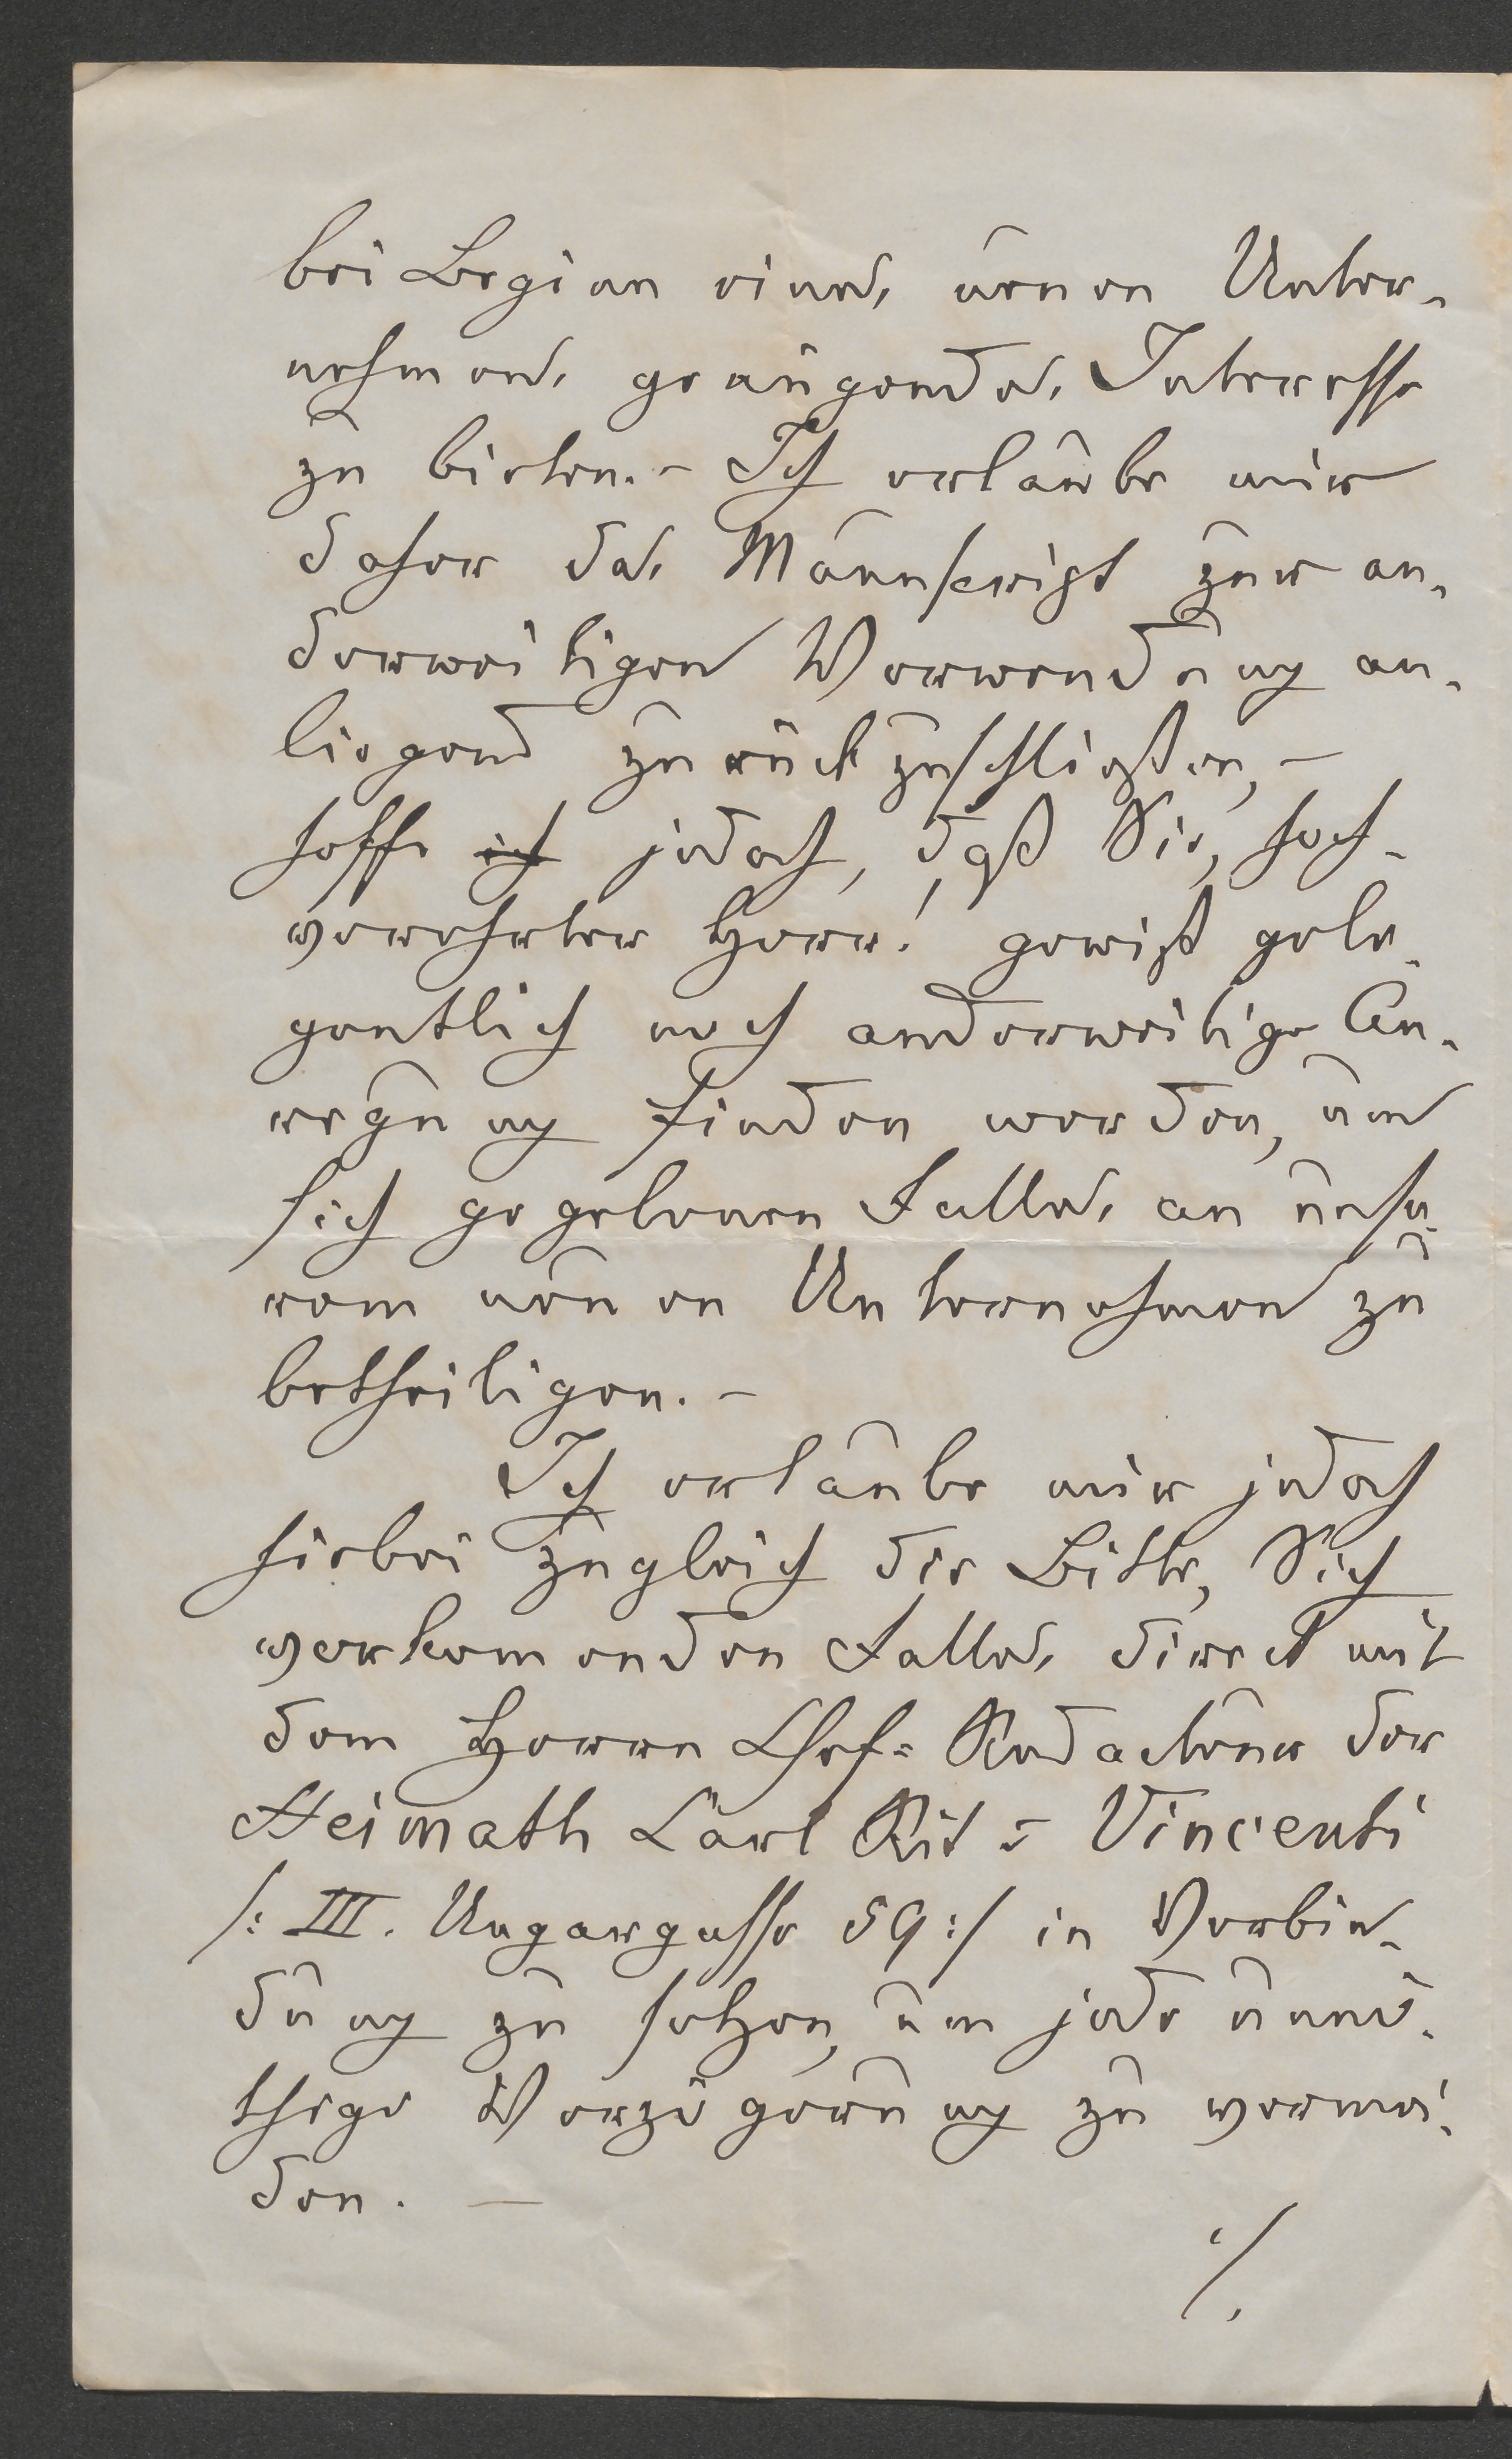 bei Beginn eines neuen Unter-
nehmens genügendes Interesse
zu bieten. – Ich erlaube mir
daher das Manuscript zur an-
derweitigen Verwendung an-
liegend zurückzuschließen, –
hoffe ich jedoch, daß Sie, hoch-
verehrter Herr! gewiß gele-
gentlich noch anderweitige An-
regung finden werden, um
sich gegebenen Falles an unse-
rem neuen Unternehmen zu
betheiligen. –
Ich erlaube mir jedoch
hiebei zugleich die Bitte, Sich
vorkommenden Falles direct mit
dem Herrn Chef-Redacteur der
Heimath Carl Rit v Vincenti
/: III. Ungargasse 59 :/ in Verbin-
dung zu setzen, um jede unnö-
thige Verzögerung zu vermei-
den. –
./.